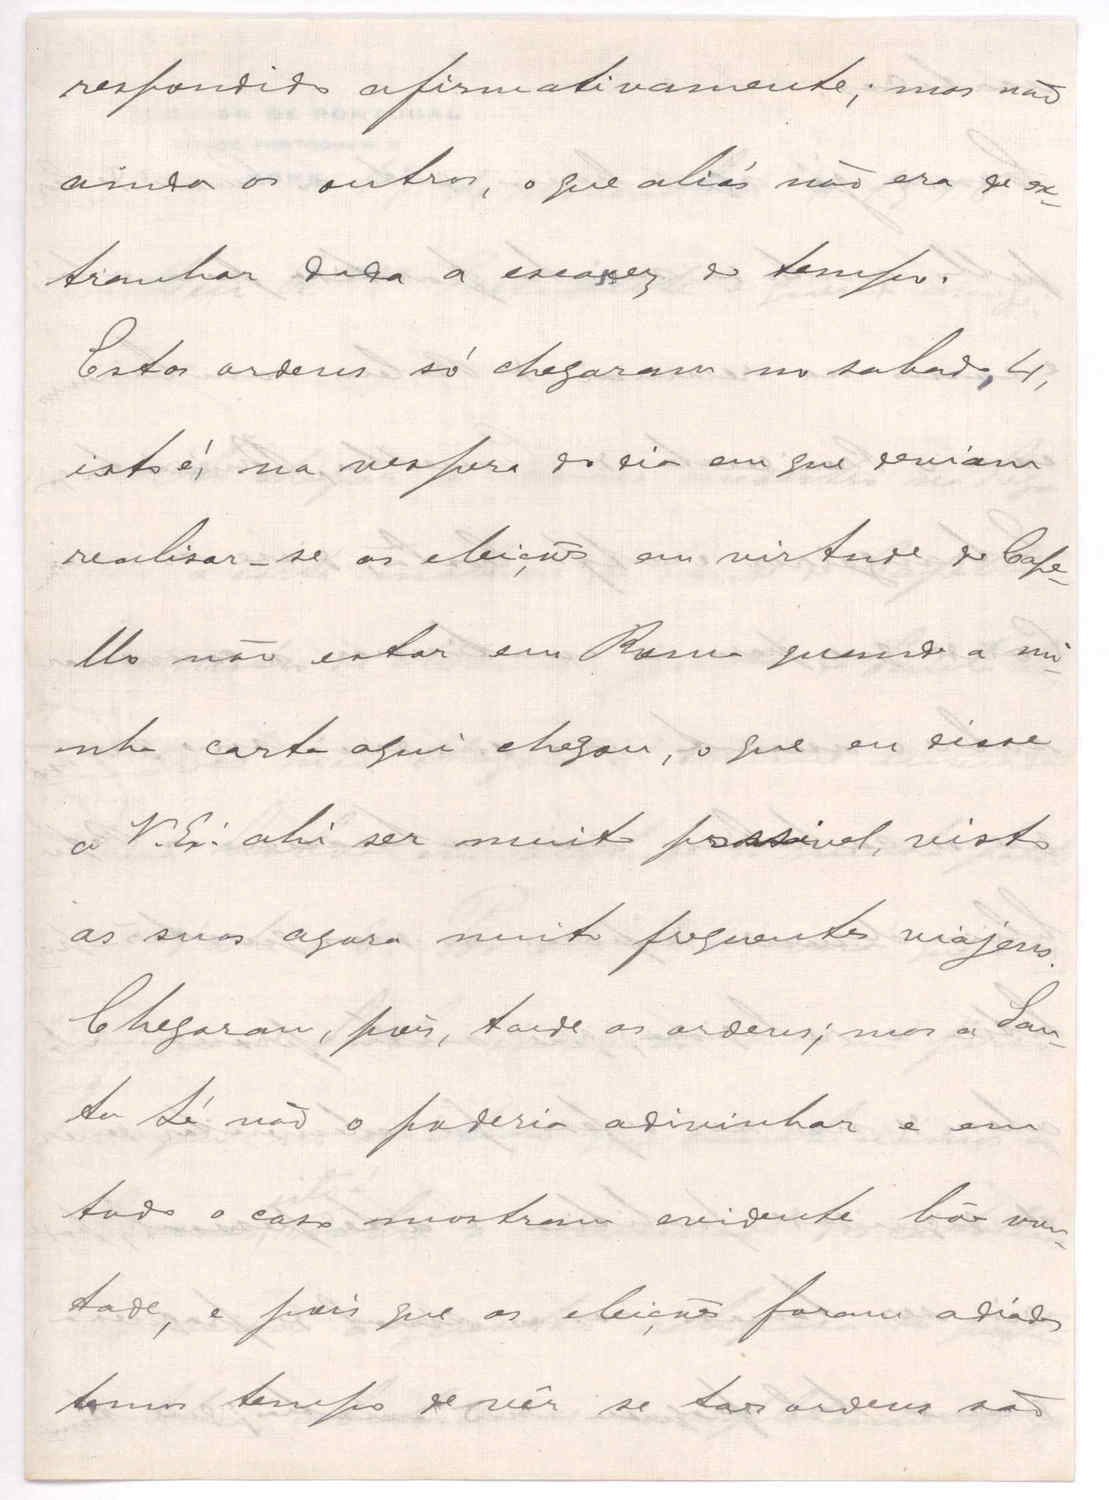 respondido afirmativamente; mas não
ainda os outros, o que aliás não era de ex-
tranhar dada a escassez do tempo.
Estas ordens só chegaram no sabado, 4,
isto é, na vespera do dia em que deviam
realisar-se as eleições em virtude do Cape-
llo não estar em Roma quando a mi-
nha carta aqui chegou, o que eu disse
a V. Ex.ª ahi ser muito possivel, visto
as suas agora muito frequentes viajens.
Chegaram, pois, tarde as ordens; mas a San-
ta Sé não o poderia adivinhar e em
todo o caso mostrou evidente bôa von-
tade, e pois que as eleições foram adiadas
temos tempo de vêr se taes ordens são